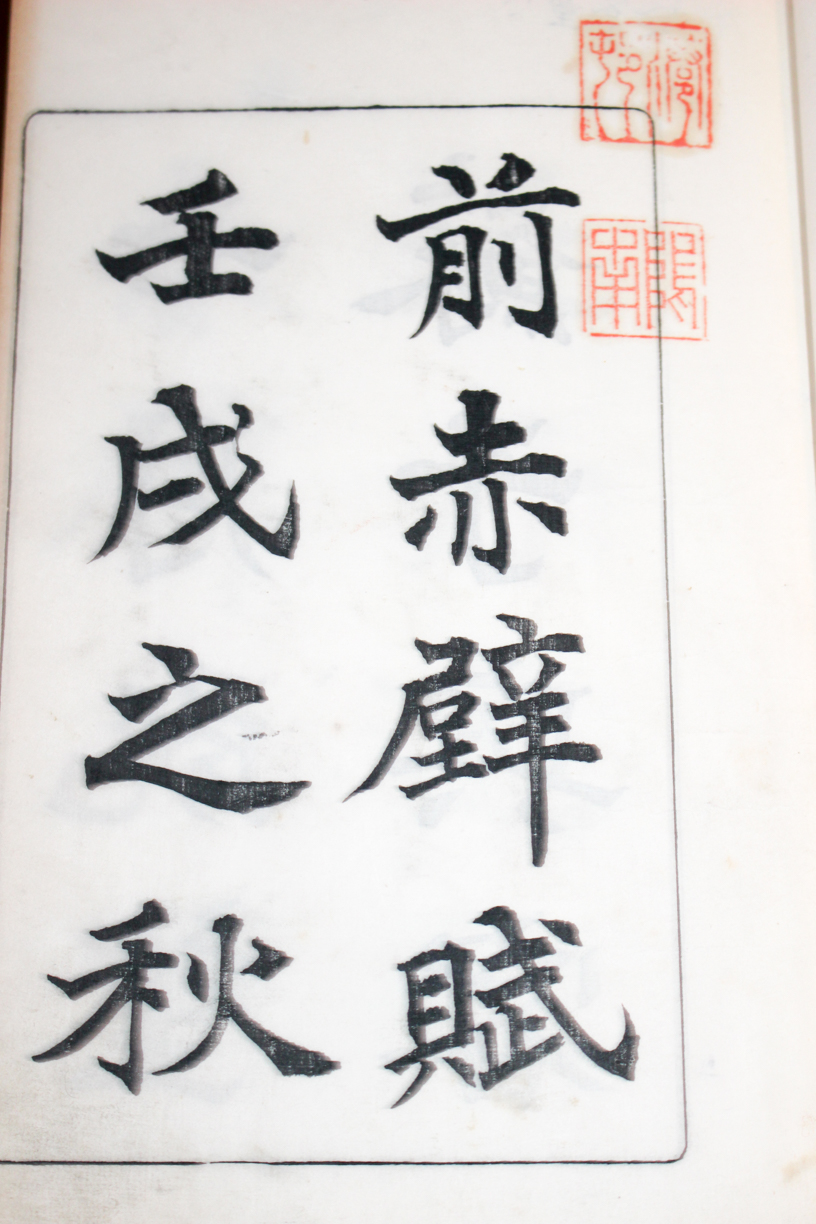 前赤壁賦
壬戌之秋